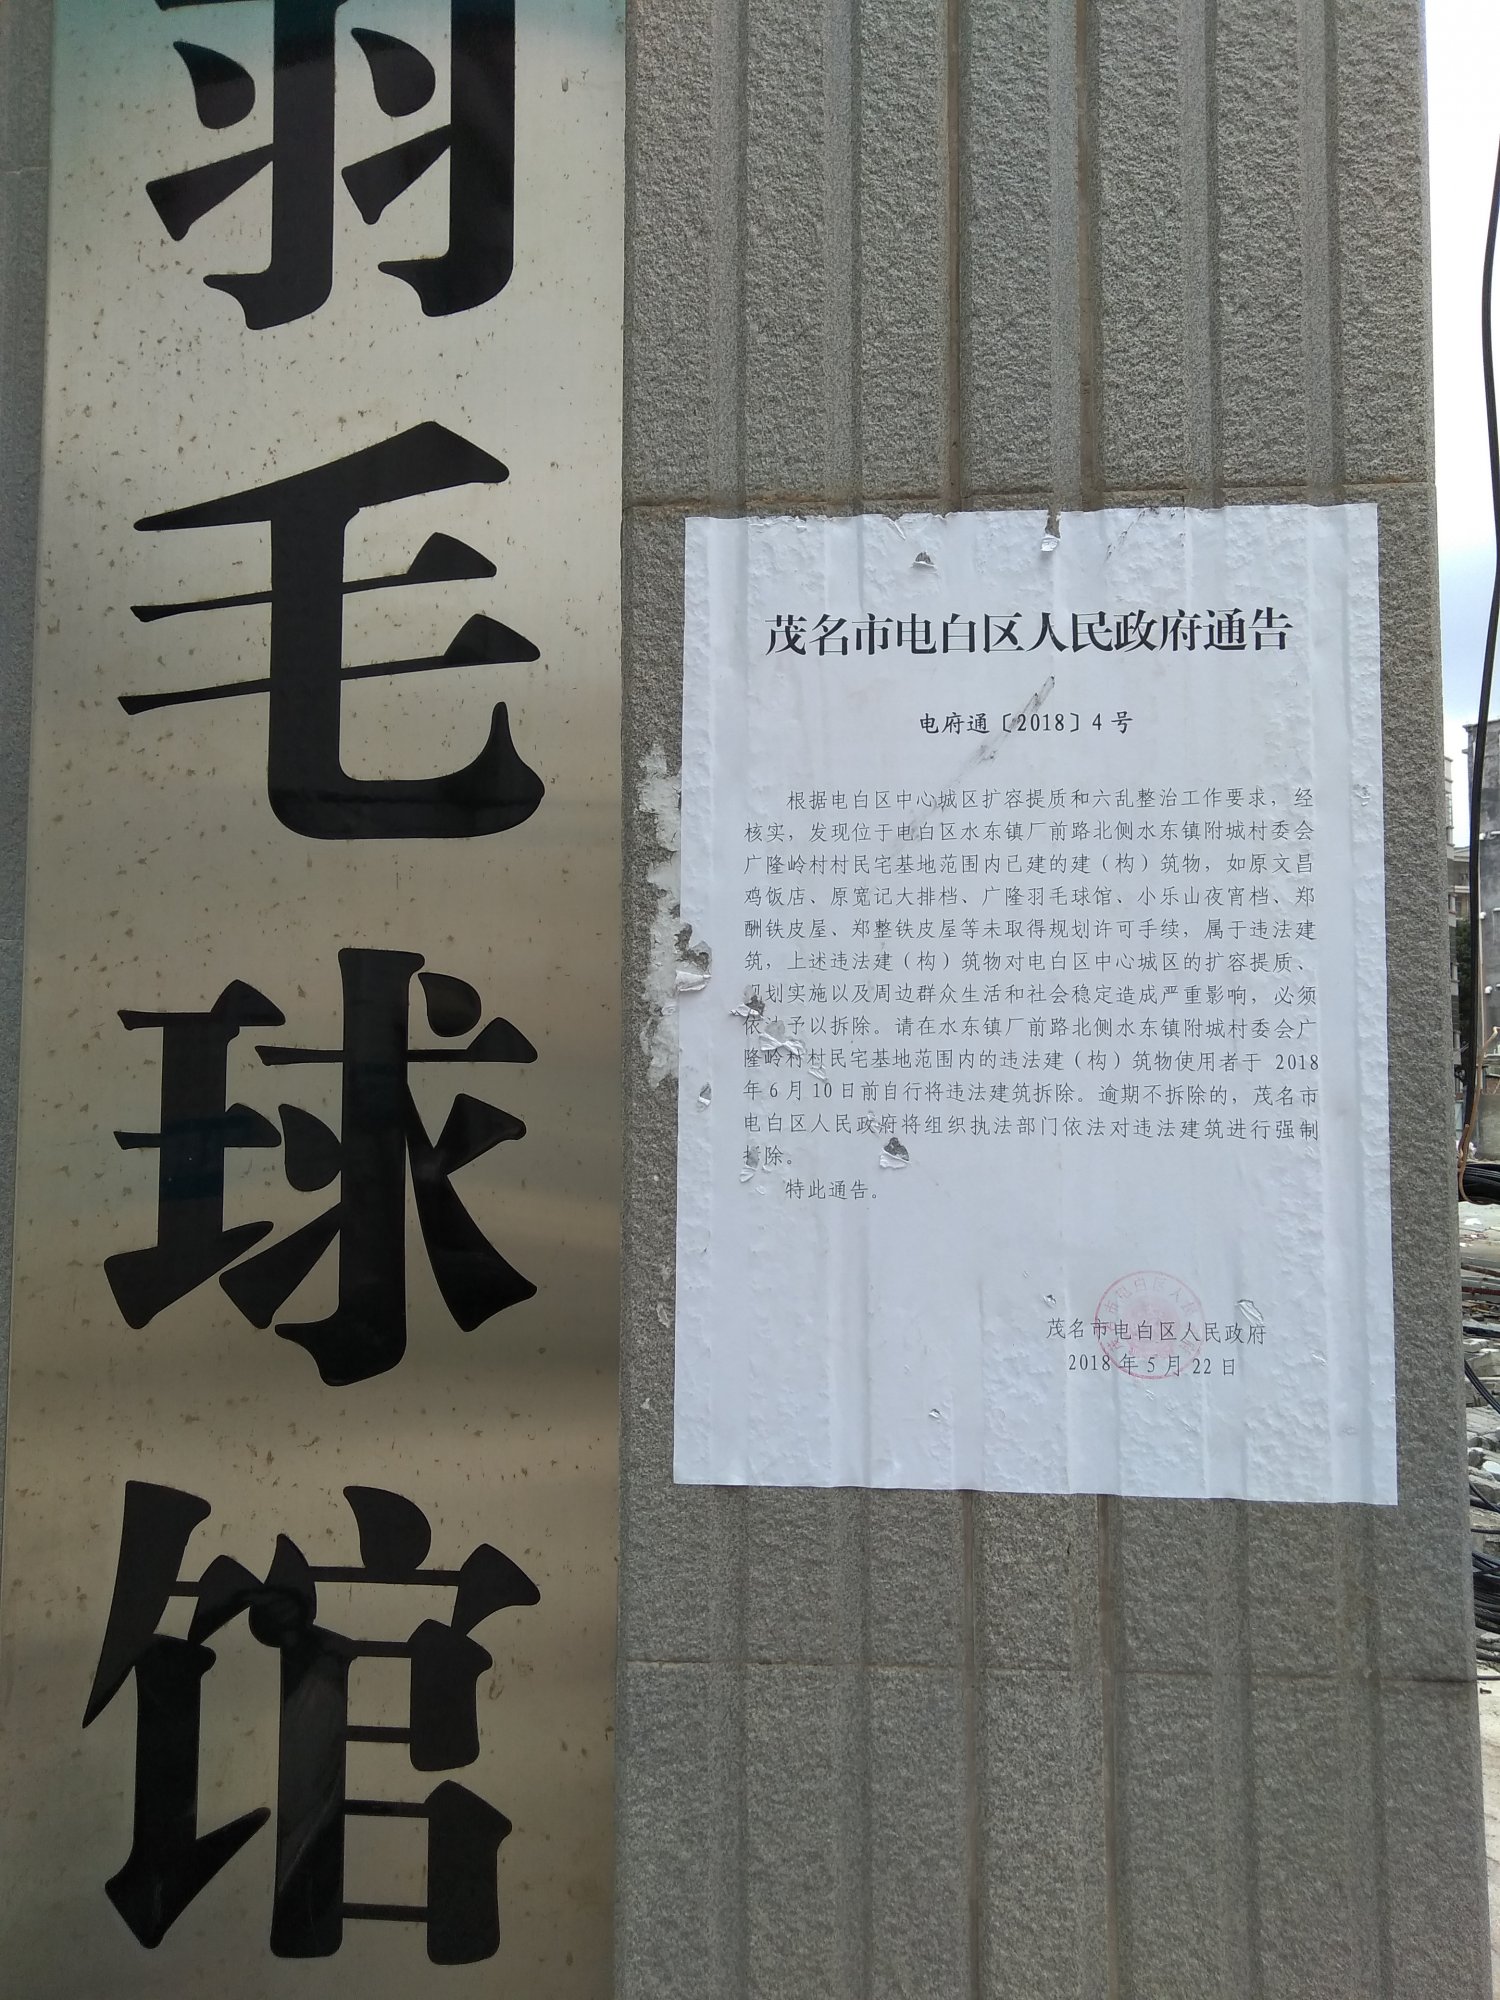 羽
毛
球
馆
茂名市电白区人民政府通告
电府通〔2018〕4号
根据电白区中心城区扩容提质和六乱整治工作要求，经
核实，发现位于电白区水东镇厂前路北侧水东镇附城村委会
广隆岭村村民宅基地范围内已建的建（构）筑物，如原文昌
鸡饭店、原宽记大排档、广隆羽毛球馆、小乐山夜宵档、郑
酬铁皮屋、郑整铁皮屋等未取得规划许可手续，属于违法建
筑，上述违法建（构）筑物对电白区中心城区的扩容提质、
规划实施以及周边群众生活和社会稳定造成严重影响，必须
依法予以拆除。请在水东镇厂前路北侧水东镇附城村委会广
隆岭村村民宅基地范围内的违法建（构）筑物使用者于 2018
年6月10日前自行将违法建筑拆除。逾期不拆除的，茂名市
电白区人民政府将组织执法部门依法对违法建筑进行强制
拆除。
特此通告。
茂名市电白区人民政府
2018年5月22日